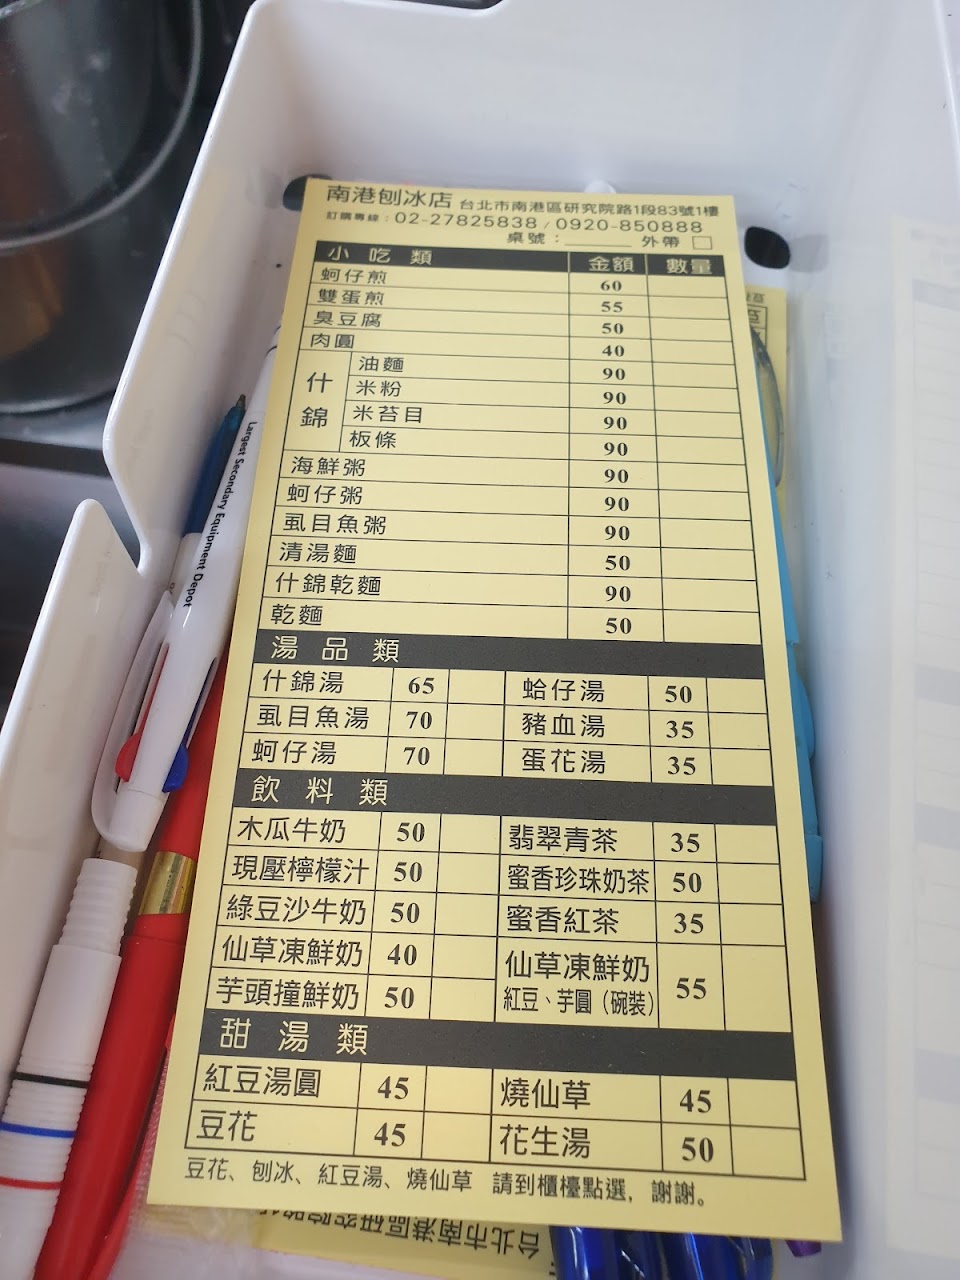 南港刨冰店 台北市南港區研究院路1段83號1樓
訂購專線：02-27825838 / 0920-850888
桌號：______ 外帶 □
小吃類 金額 數量
蚵仔煎 60
雙蛋煎 55
臭豆腐 50
肉圓 40
什錦 油麵 90
米粉 90
米苔目 90
板條 90
海鮮粥 90
蚵仔粥 90
虱目魚粥 90
清湯麵 50
什錦乾麵 90
乾麵 50
湯品類
什錦湯 65 蛤仔湯 50
虱目魚湯 70 豬血湯 35
蚵仔湯 70 蛋花湯 35
飲料類
木瓜牛奶 50 翡翠青茶 35
現壓檸檬汁 50 蜜香珍珠奶茶 50
綠豆沙牛奶 50 蜜香紅茶 35
仙草凍鮮奶 40 仙草凍鮮奶 55
紅豆、芋圓（碗裝）
芋頭撞鮮奶 50
甜湯類
紅豆湯圓 45 燒仙草 45
豆花 45 花生湯 50
豆花、刨冰、紅豆湯、燒仙草 請到櫃檯點選，謝謝。
Largest Secondary Equipment Depot
台北市南港區研究院路